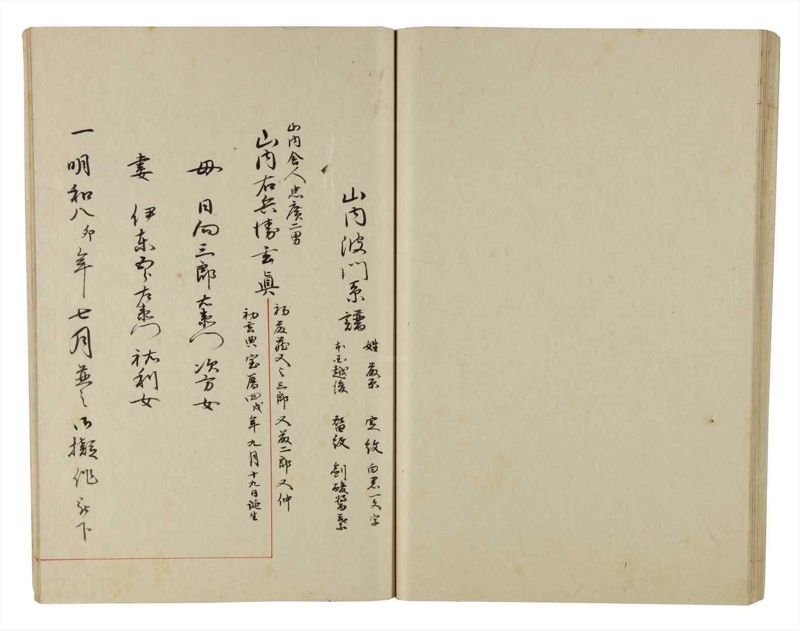 山内波門系譜
姓藤原 定紋 白黒一文字
本国越後 替紋 剣酸漿
山内舎人忠廣二男
山内右兵衛玄真
初 又三郎 又 二郎 又仲
初玄興宝暦四戌年九月十九日誕生
母 日向三郎右衛門次方女
妻 伊東 左衛門祐利女
一明和八卯年七月 御擬作 下